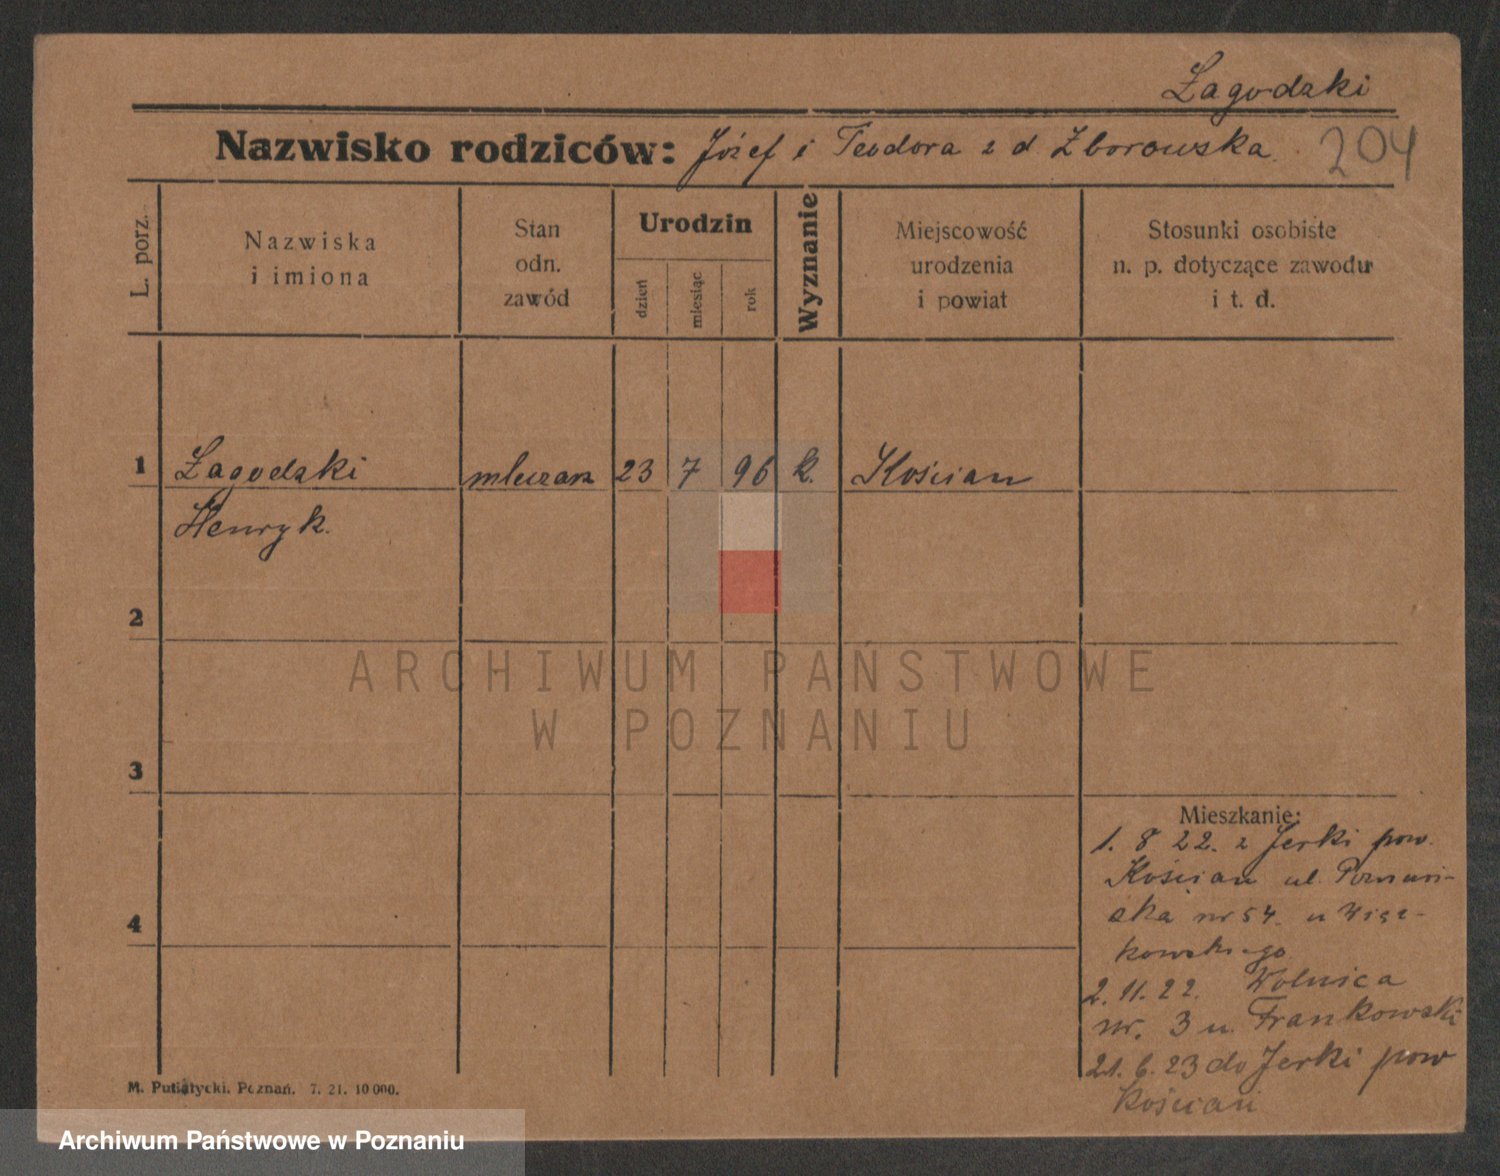 Łagodzki
Nazwisko rodziców: Józef i Teodora z d Zborowska
204
L. porz.
Nazwiska
i imiona
Stan
odn.
zawód
Urodzin
dzień
miesiąc
rok
Wyznanie
Miejscowość
urodzenia
i powiat
Stosunki osobiste
n. p. dotyczące zawodu
i t. d.
1 Łagodzki mleczarz 23 7 96 k. Kościan
Henryk.
2
ARCHIWUM PAŃSTWOWE
W POZNANIU
3
4
Mieszkanie:
1. 8 22. z Jerki pow.
Kościan ul. Poznań-
ska nr 54. u
kowskiego
2. 11. 22. Wolnica
nr. 3 u. Frankowski
21. 6. 23 do Jerki pow
Kościan
M. Putiatycki. Poznań. 7. 21. 10 000.
Archiwum Państwowe w Poznaniu